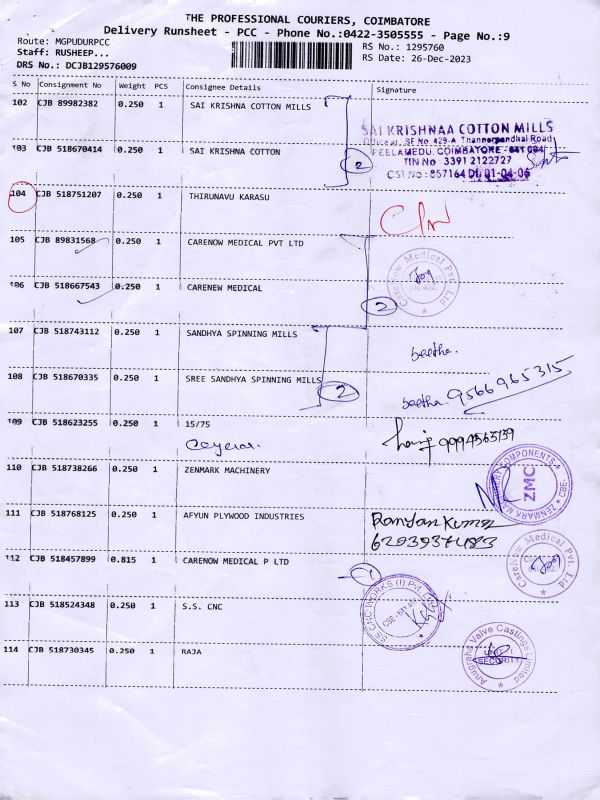 THE PROFESSIONAL COURIERS, COIMBATORE
Delivery Runsheet - PCC - Phone No.:0422-3505555 - Page No.:9
Route: MGPUDURPCC
RS No.: 1295760
Staff: RUSHEEP...
RS Date: 26-Dec-2023
DRS No.: DCJB129576009
S No Consignment No Weight PCS Consignee Details Signature
102 CJB 89982382 0.250 1 SAI KRISHNA COTTON MILLS
SAI KRISHNAA COTTON MILLS
SF No 429-A Thanneerpandhal Road
PEELAMEDU, COIMBATORE - 641 004
TIN No 3391 2122727
CST No : 857164 Dt/ 01-04-06
103 CJB 518670414 0.250 1 SAI KRISHNA COTTON
2
104 CJB 518751207 0.250 1 THIRUNAVU KARASU
105 CJB 89831568 0.250 1 CARENOW MEDICAL PVT LTD
CareNow Medical Pvt. Ltd
106 CJB 518667543 0.250 1 CARENEW MEDICAL
2
107 CJB 518743112 0.250 1 SANDHYA SPINNING MILLS
Seetha.
108 CJB 518670335 0.250 1 SREE SANDHYA SPINNING MILLS
2
Seetha 9566965315
109 CJB 518623255 0.250 1 15/75
110 CJB 518738266 0.250 1 ZENMARK MACHINERY
ZENMARK MACHINERY COMPONENTS
ZMC
CBE-
111 CJB 518768125 0.250 1 AFYUN PLYWOOD INDUSTRIES
112 CJB 518457899 0.815 1 CARENOW MEDICAL P LTD
CareNow Medical Pvt.
1
113 CJB 518524348 0.250 1 S.S. CNC
114 CJB 518730345 0.250 1 RAJA
Anugraha Valve Castings Limited
UNIT I
SECURITY